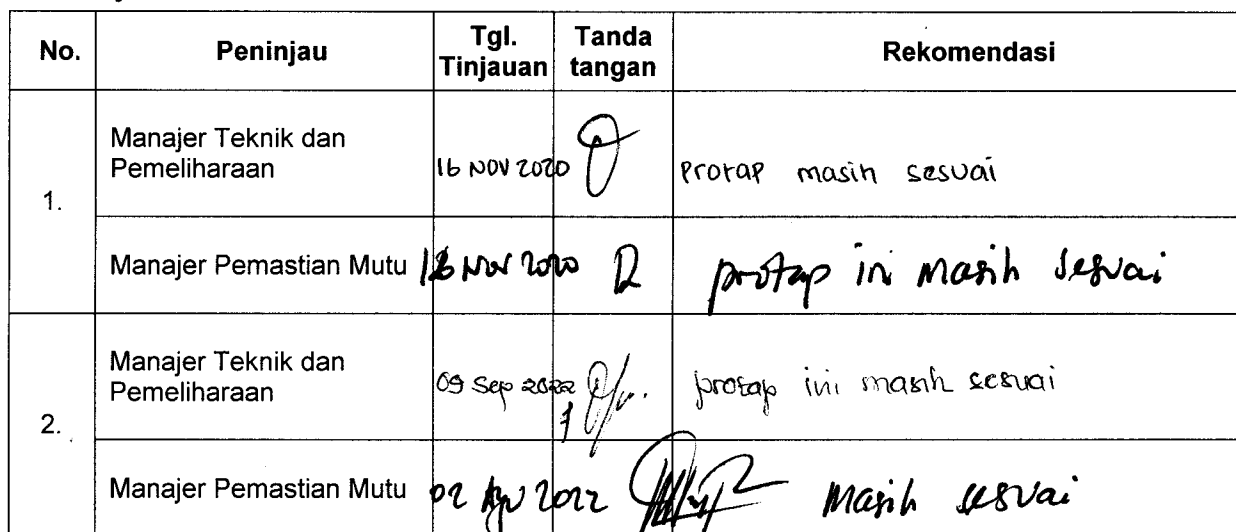 No. Peninjau Tgl. Tinjauan Tanda tangan Rekomendasi
1.
Manajer Teknik dan Pemeliharaan 16 NOV 2020 protap masih sesuai
Manajer Pemastian Mutu Nov 2020 protap ini masih sesuai
2.
Manajer Teknik dan Pemeliharaan 09 Sep protap ini masih sesuai
Manajer Pemastian Mutu 02 Agu 2022 masih sesuai